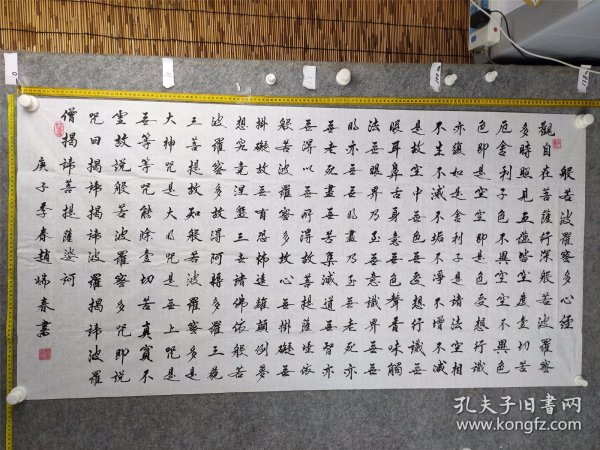 般若波羅蜜多心經
觀自在菩薩行深般若波羅蜜
多時照見五蘊皆空度一切苦
厄舍利子色不異空空不異色
色即是空空即是色受想行識
亦復如是舍利子是諸法空相
不生不滅不垢不淨不增不減
是故空中無色無受想行識無
眼耳鼻舌身意無色聲香味觸
法無眼界乃至無意識界無無
明亦無無明盡乃至無老死亦
無老死盡無苦集滅道無智亦
無得以無所得故菩提薩埵依
般若波羅蜜多故心無掛礙無
掛礙故無有恐怖遠離顛倒夢
想究竟涅槃三世諸佛依般若
波羅蜜多故得阿耨多羅三藐
三菩提故知般若波羅蜜多是
大神咒是大明咒是無上咒是
無等等咒能除一切苦真實不
虛故說般若波羅蜜多咒即說
咒曰揭諦揭諦波羅揭諦波羅
僧揭諦菩提薩婆訶
庚子季春趙瑞春書
孔夫子旧书网
www.kongfz.com